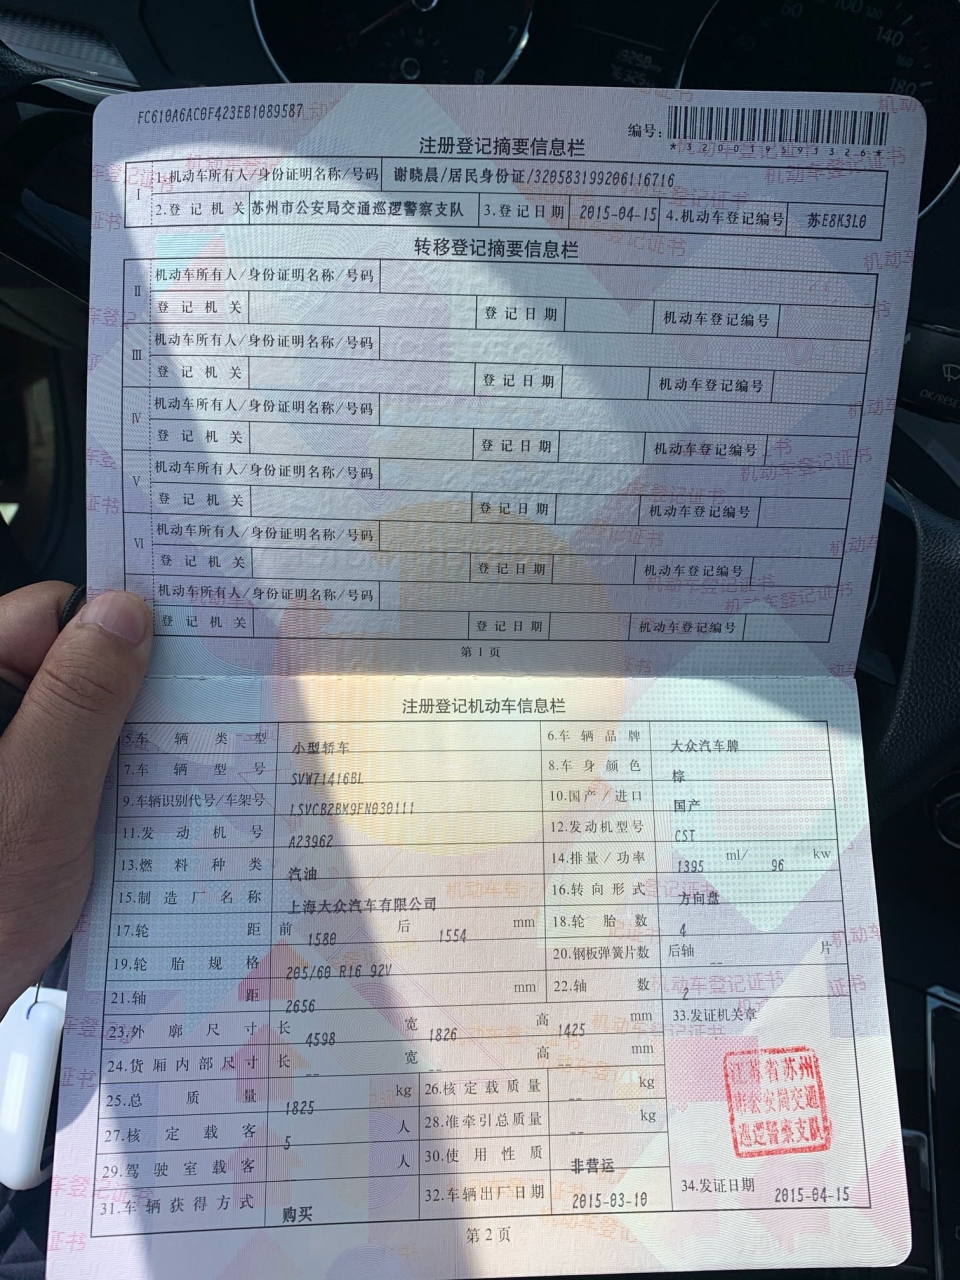 FC610A6AC0F423EB1089587
编号:
*320019593326*
注册登记摘要信息栏
I 1.机动车所有人/身份证明名称/号码 谢晓晨/居民身份证/320583199206116716
2.登记机关 苏州市公安局交通巡逻警察支队 3.登记日期 2015-04-15 4.机动车登记编号 苏E8K3L0
转移登记摘要信息栏
II 机动车所有人/身份证明名称/号码
登记机关 登记日期 机动车登记编号
III 机动车所有人/身份证明名称/号码
登记机关 登记日期 机动车登记编号
IV 机动车所有人/身份证明名称/号码
登记机关 登记日期 机动车登记编号
V 机动车所有人/身份证明名称/号码
登记机关 登记日期 机动车登记编号
VI 机动车所有人/身份证明名称/号码
登记机关 登记日期 机动车登记编号
机动车所有人/身份证明名称/号码
登记机关 登记日期 机动车登记编号
第1页
注册登记机动车信息栏
5.车辆类型 小型轿车 6.车辆品牌 大众汽车牌
7.车辆型号 SVW71416BL 8.车身颜色 棕
9.车辆识别代号/车架号 LSVCB2BM9FN030111 10.国产/进口 国产
11.发动机号 A23962 12.发动机型号 CST
13.燃料种类 汽油 14.排量/功率 1395 ml/ 96 kw
15.制造厂名称 上海大众汽车有限公司 16.转向形式 方向盘
17.轮距 前 1580 后 1554 mm 18.轮胎数 4
19.轮胎规格 205/60 R16 92V 20.钢板弹簧片数 后轴 -- 片
21.轴距 2656 mm 22.轴数 2
23.外廓尺寸 长 4598 宽 1826 高 1425 mm 33.发证机关章
24.货厢内部尺寸 长 -- 宽 -- 高 -- mm
25.总质量 1825 kg 26.核定载质量 -- kg
27.核定载客 5 人 28.准牵引总质量 -- kg
29.驾驶室载客 人 30.使用性质 非营运
31.车辆获得方式 购买 32.车辆出厂日期 2015-03-10 34.发证日期 2015-04-15
江苏省苏州
市公安局交通
巡逻警察支队
第2页